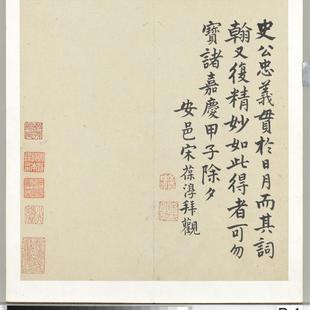 史公忠義貫於日月而其詞
翰又復精妙如此得者可勿
寶諸嘉慶甲子除夕
安邑宋葆淳拜觀